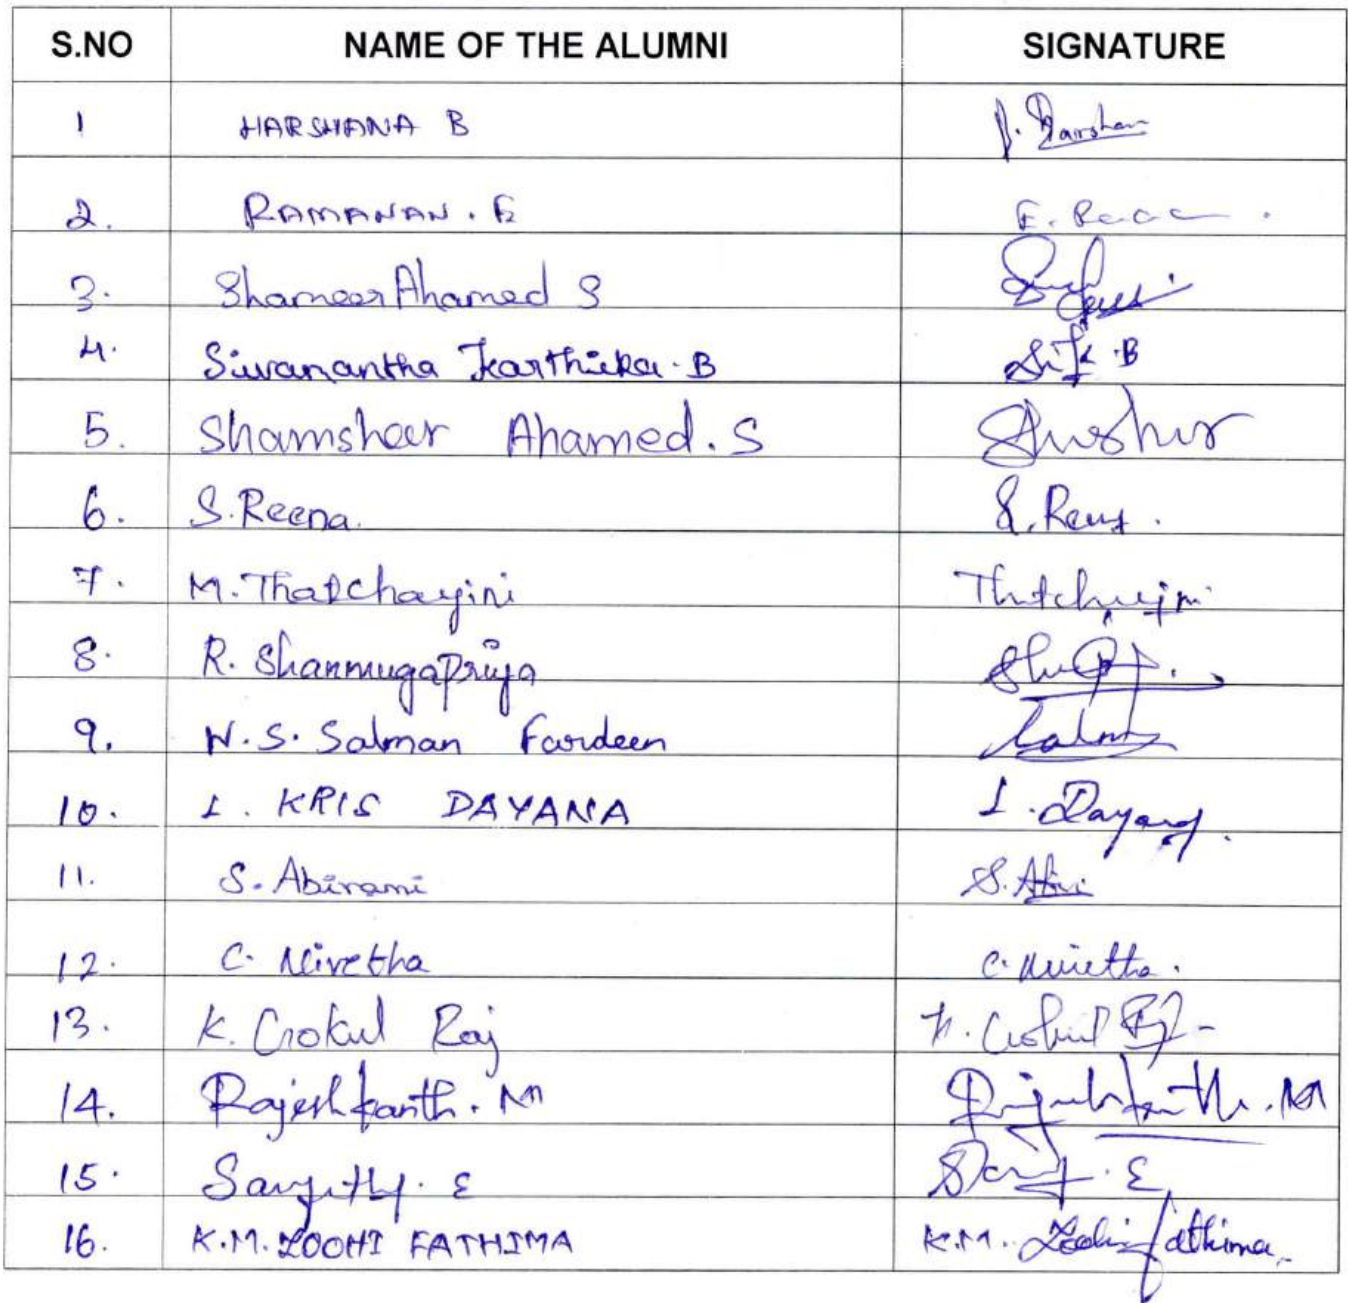 S.NO NAME OF THE ALUMNI SIGNATURE
1 HARSHANA B
2. RAMANAN. E E.
3. Shameer Ahamed S
4. Sivanantha Karthika. B .B
5. Shamsheer Ahamed. S
6. S. Reena. S.
7. M. Thatchayini
8. R. Shanmugapriya
9. N. S. Salman Fardeen
10. I. KRIS DAYANA I. Dayana.
11. S. Abirami S. Abi
12. C. Nivetha C. Nivetha.
13. K. Gokul Raj K. Gokul
14. Rajeshkanth. M Rajeshkanth. M
15. E . E
16. K.M. ZOOHI FATHIMA K.M. Zoohi fathima